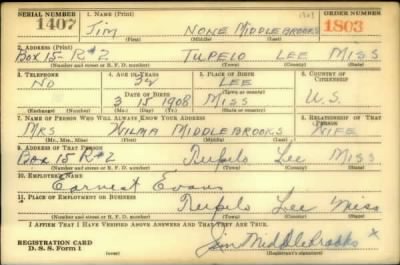 SERIAL NUMBER 1. NAME (Print) ORDER NUMBER
1407 JIM NONE MIDDLEBROOKS 1803
(First) (Middle) (Last)
2. ADDRESS (Print)
BOX 15- R#2 TUPELO LEE MISS
(Number and street or R. F. D. number) (Town) (County) (State)
3. TELEPHONE 4. AGE IN YEARS 5. PLACE OF BIRTH 6. COUNTRY OF CITIZENSHIP
NO 32 LEE
DATE OF BIRTH (Town or county)
3 15 1908 MISS U.S.
(Exchange) (Number) (Mo.) (Day) (Yr.) (State or country)
7. NAME OF PERSON WHO WILL ALWAYS KNOW YOUR ADDRESS 8. RELATIONSHIP OF THAT PERSON
MRS WILMA MIDDLEBROOKS WIFE
(Mr., Mrs., Miss) (First) (Middle) (Last)
9. ADDRESS OF THAT PERSON
BOX 15 R#2 Tupelo Lee MISS
(Number and street or R. F. D. number) (Town) (County) (State)
10. EMPLOYER'S NAME
Earnest Evans
11. PLACE OF EMPLOYMENT OR BUSINESS
Tupelo Lee Miss
(Number and street or R. F. D. number) (Town) (County) (State)
I AFFIRM THAT I HAVE VERIFIED ABOVE ANSWERS AND THAT THEY ARE TRUE.
REGISTRATION CARD
D. S. S. Form 1 Jim Middlebrooks x
(over) (Registrant's signature)